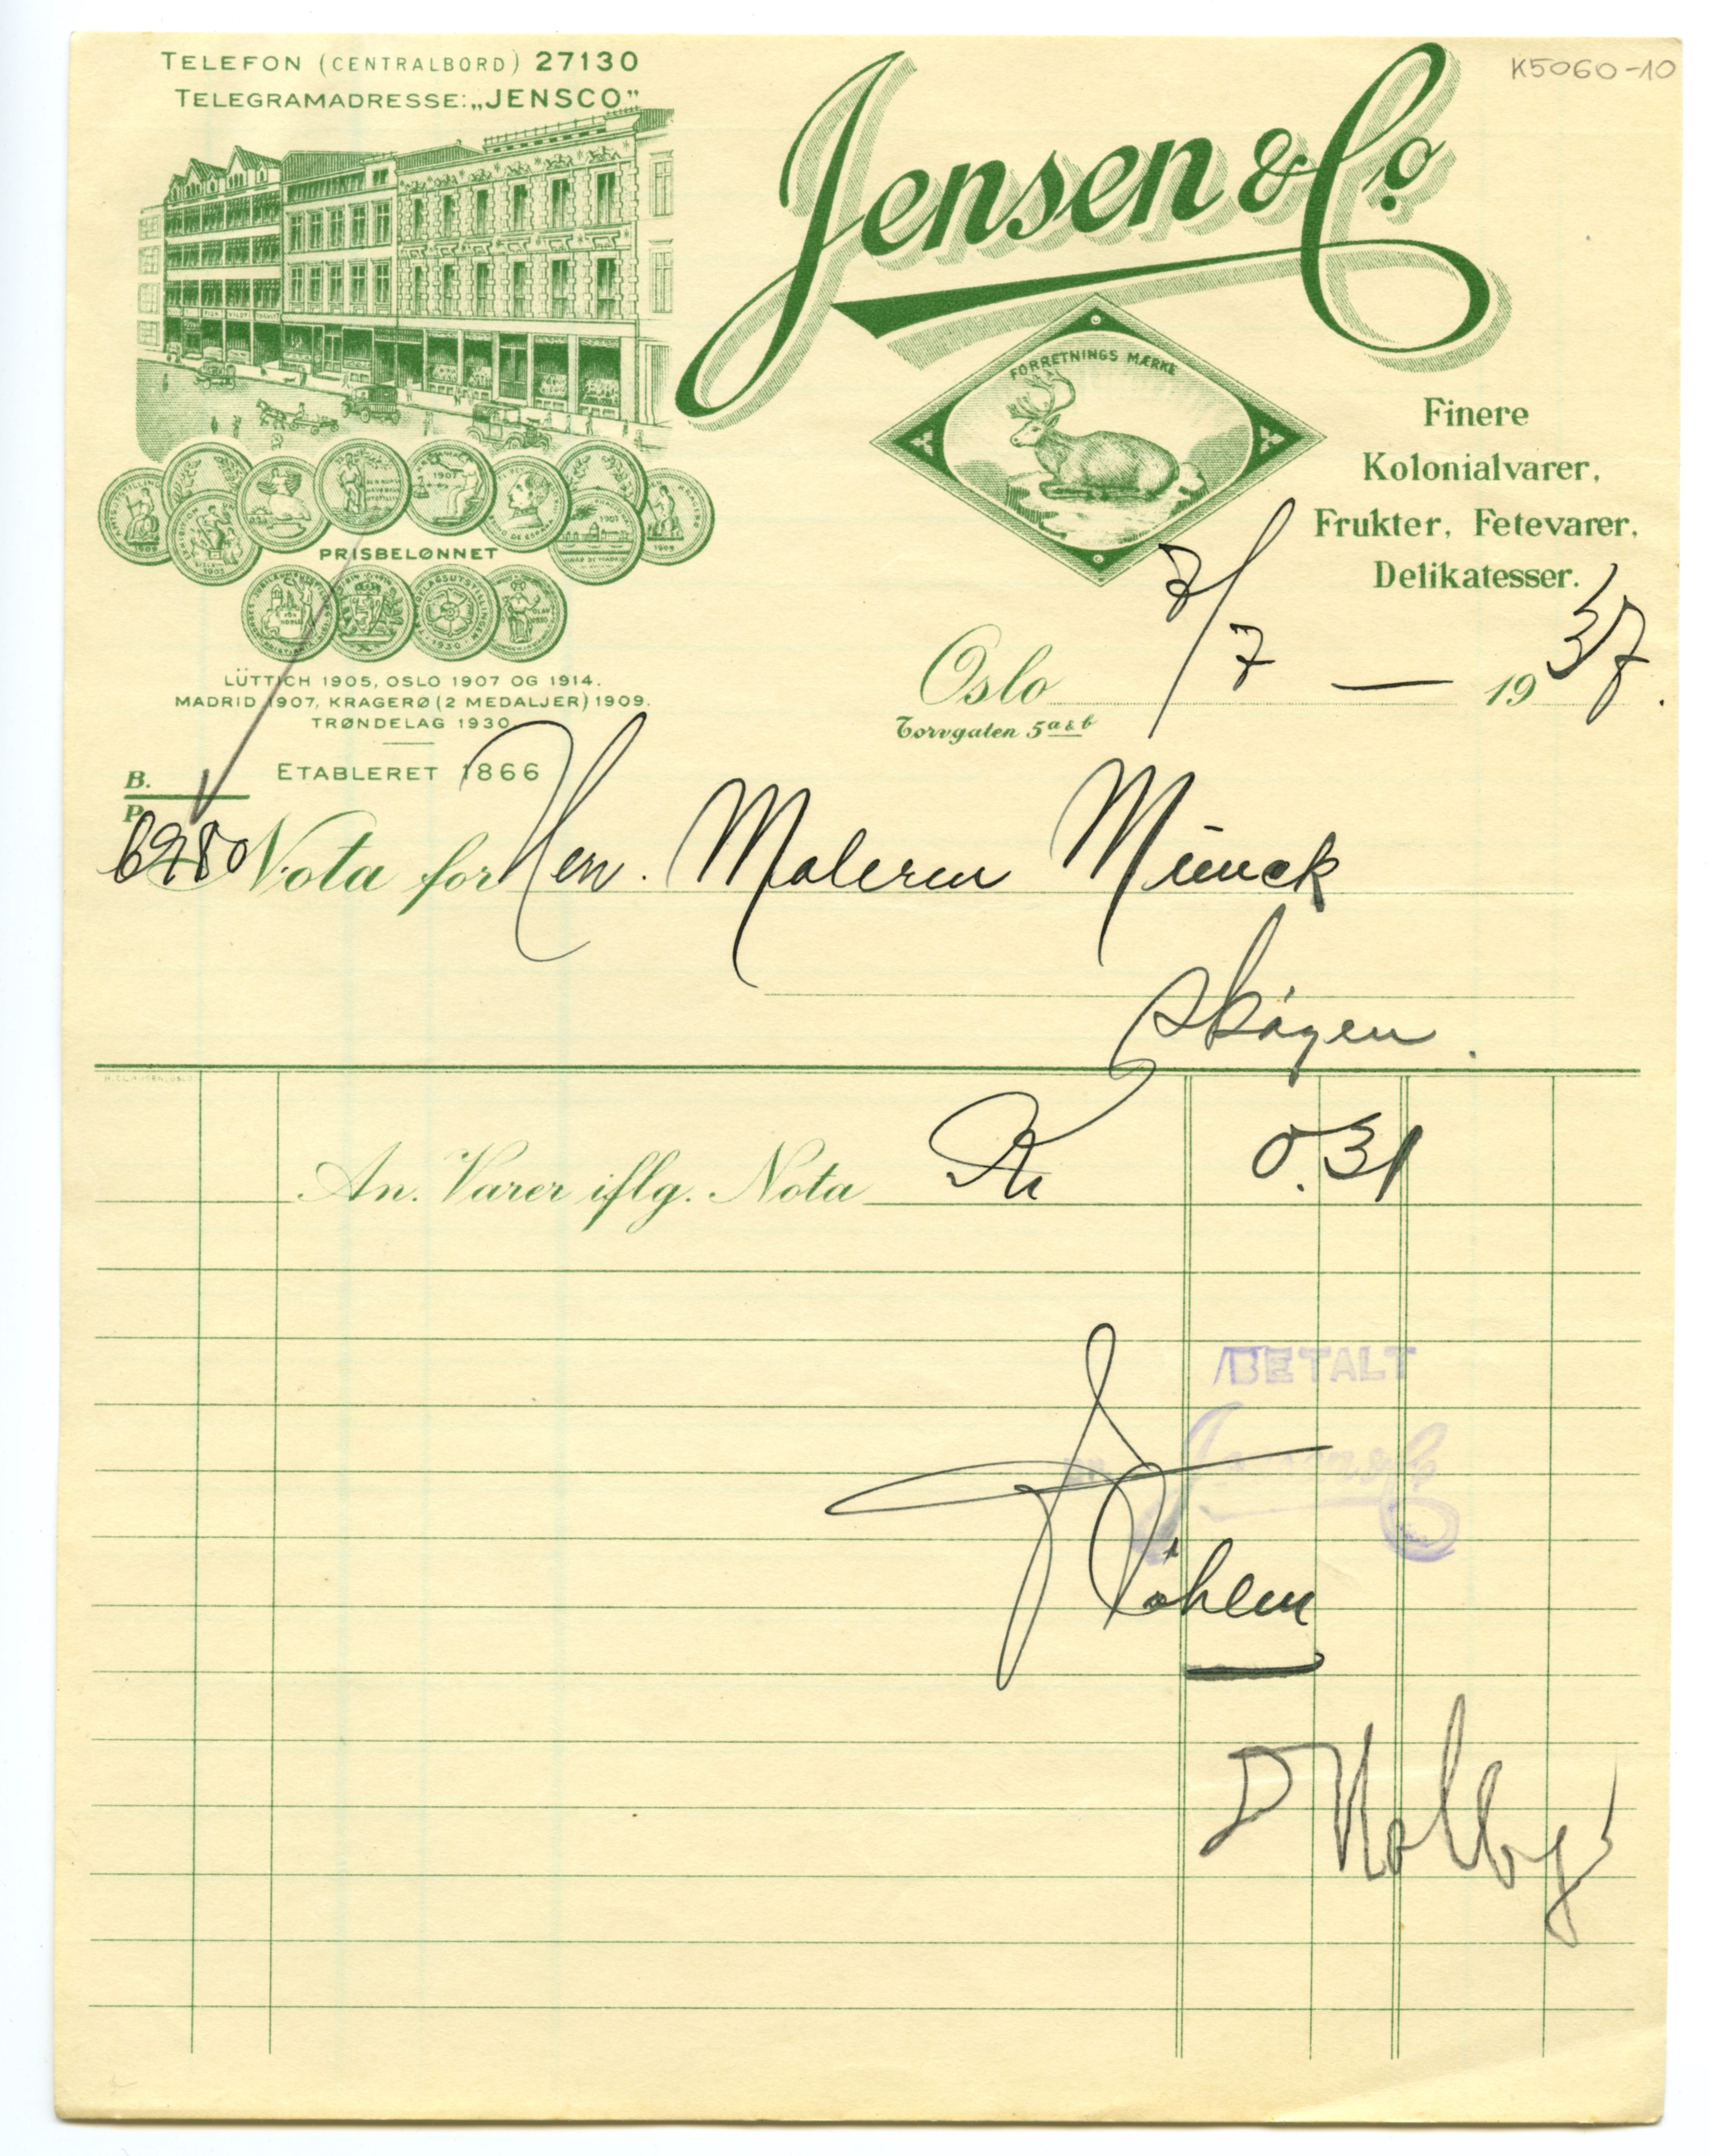 TELEFON (CENTRALBORD) 27130
TELEGRAMADRESSE: „JENSCO”
Jensen & Co.
K5060-10
FORRETNINGS MÆRKE
Finere
Kolonialvarer,
Frukter, Fetevarer,
Delikatesser.
PRISBELØNNET
LÜTTICH 1905, OSLO 1907 OG 1914.
MADRID 1907, KRAGERØ (2 MEDALJER) 1909.
TRØNDELAG 1930
ETABLERET 1866
Oslo 7/7 — 1937.
Torvgaten 5 a & b
B.
P.
Nota for Herr. Maleren Munck
Skøyen.
An. Varer iflg. Nota Kr 0.31
BETALT
Jensen & Co